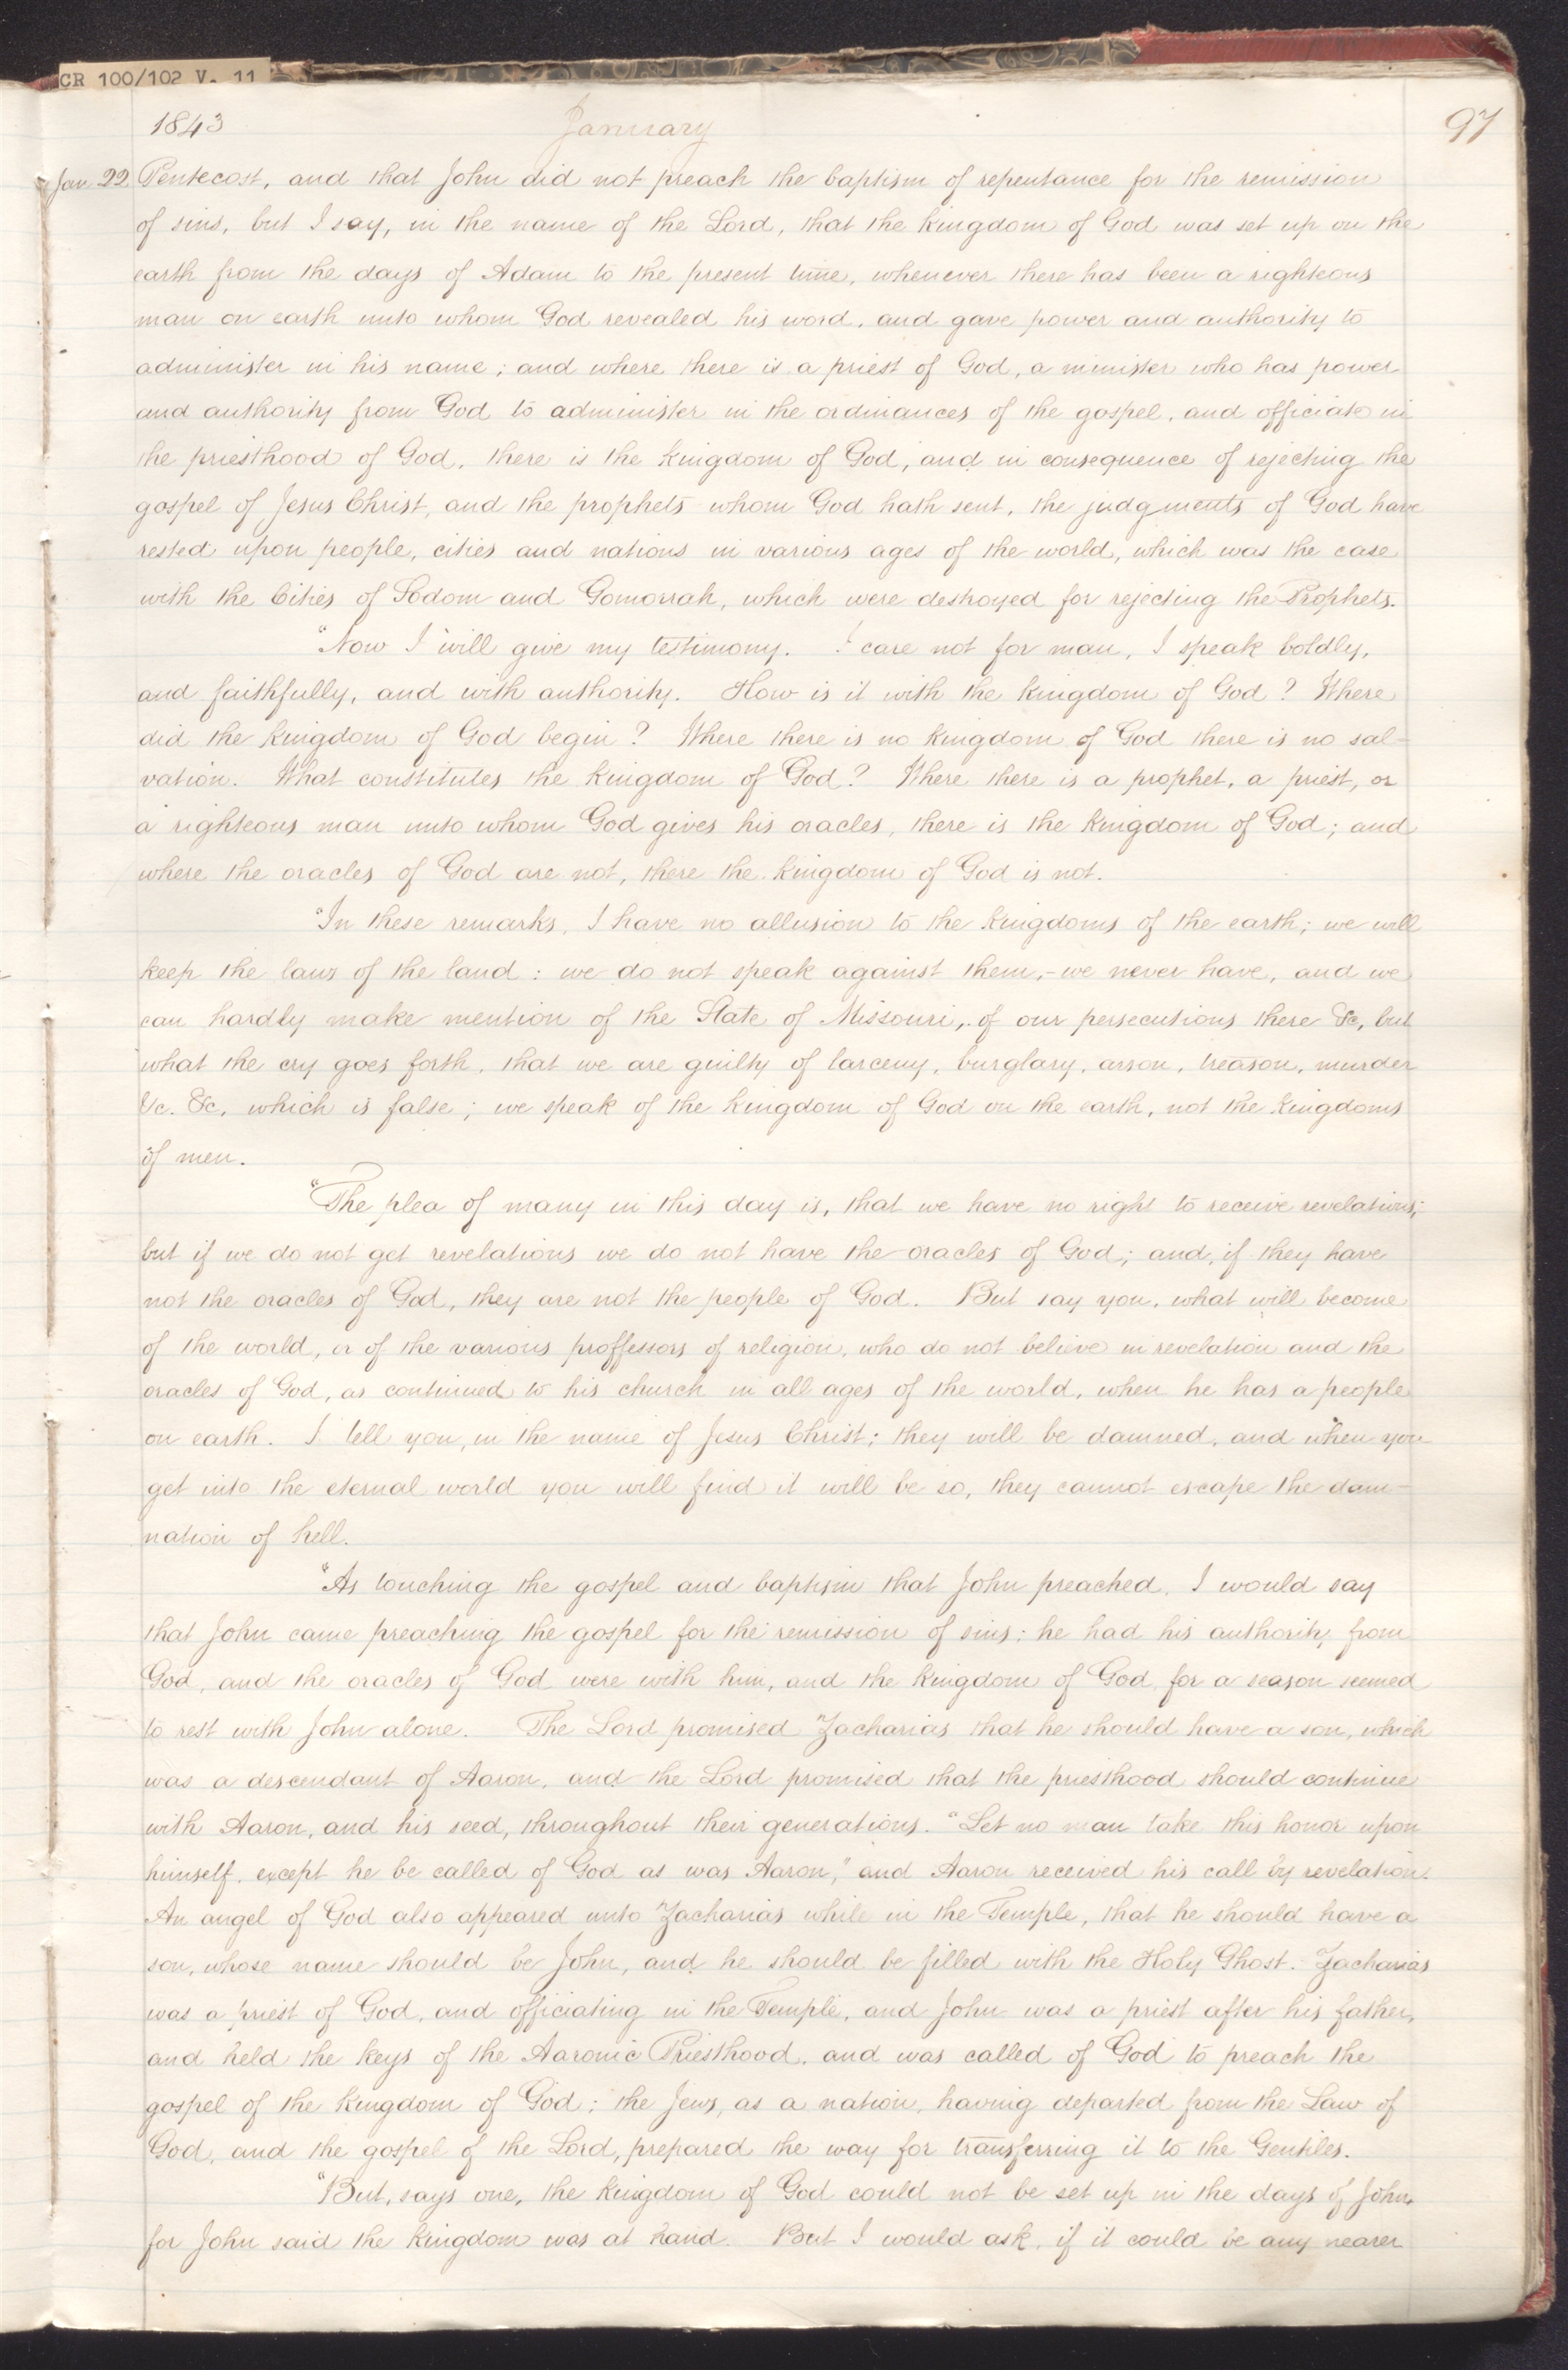 CR 100/102 V. 11
1843 January 97
Jan 22. Pentecost, and that John did not preach the baptism of repentance for the remission
of sins, but I say, in the name of the Lord, that the kingdom of God was set up on the
earth from the days of Adam to the present time, whenever there has been a righteous
man on earth unto whom God revealed his word, and gave power and authority to
administer in his name; and where there is a priest of God, a minister who has power
and authority from God to administer in the ordinances of the gospel, and officiate in
the priesthood of God, there is the kingdom of God, and in consequence of rejecting the
gospel of Jesus Christ, and the prophets whom God hath sent, the judgments of God have
rested upon people, cities and nations in various ages of the world, which was the case
with the Cities of Sodom and Gomorrah, which were destroyed for rejecting the Prophets.
"Now I will give my testimony. I care not for man, I speak boldly,
and faithfully, and with authority. How is it with the kingdom of God? Where
did the kingdom of God begin? Where there is no kingdom of God there is no sal-
vation. What constitutes the kingdom of God? Where there is a prophet, a priest, or
a righteous man unto whom God gives his oracles, there is the kingdom of God; and
where the oracles of God are not, there the kingdom of God is not.
"In these remarks, I have no allusion to the kingdoms of the earth; we will
keep the laws of the land: we do not speak against them,- we never have, and we
can hardly make mention of the State of Missouri, of our persecutions there &c, but
what the cry goes forth, that we are guilty of larceny, burglary, arson, treason, murder
&c. &c, which is false; we speak of the kingdom of God on the earth, not the kingdoms
of men.
"The plea of many in this day is, that we have no right to receive revelations;
but if we do not get revelations we do not have the oracles of God; and, if they have
not the oracles of God, they are not the people of God. But say you, what will become
of the world, or of the various proffessors of religion, who do not believe in revelation and the
oracles of God, as continued to his church in all ages of the world, when he has a people
on earth. I tell you, in the name of Jesus Christ; they will be damned, and when you
get into the eternal world you will find it will be so, they cannot escape the dam-
nation of hell.
"As touching the gospel and baptism that John preached, I would say
that John came preaching the gospel for the remission of sins; he had his authority from
God, and the oracles of God were with him, and the kingdom of God, for a season seemed
to rest with John alone. The Lord promised Zacharias that he should have a son, which
was a descendant of Aaron, and the Lord promised that the priesthood should continue
with Aaron, and his seed, throughout their generations. "Let no man take this honor upon
himself, except he be called of God as was Aaron," and Aaron received his call by revelation.
An angel of God also appeared unto Zacharias while in the Temple, that he should have a
son, whose name should be John, and he should be filled with the Holy Ghost. Zacharias
was a priest of God, and officiating in the Temple, and John was a priest after his father,
and held the keys of the Aaronic Priesthood, and was called of God to preach the
gospel of the kingdom of God; the Jews, as a nation, having departed from the Law of
God, and the gospel of the Lord, prepared the way for transferring it to the Gentiles.
"But, says one, the kingdom of God could not be set up in the days of John,
for John said the kingdom was at hand. But I would ask, if it could be any nearer